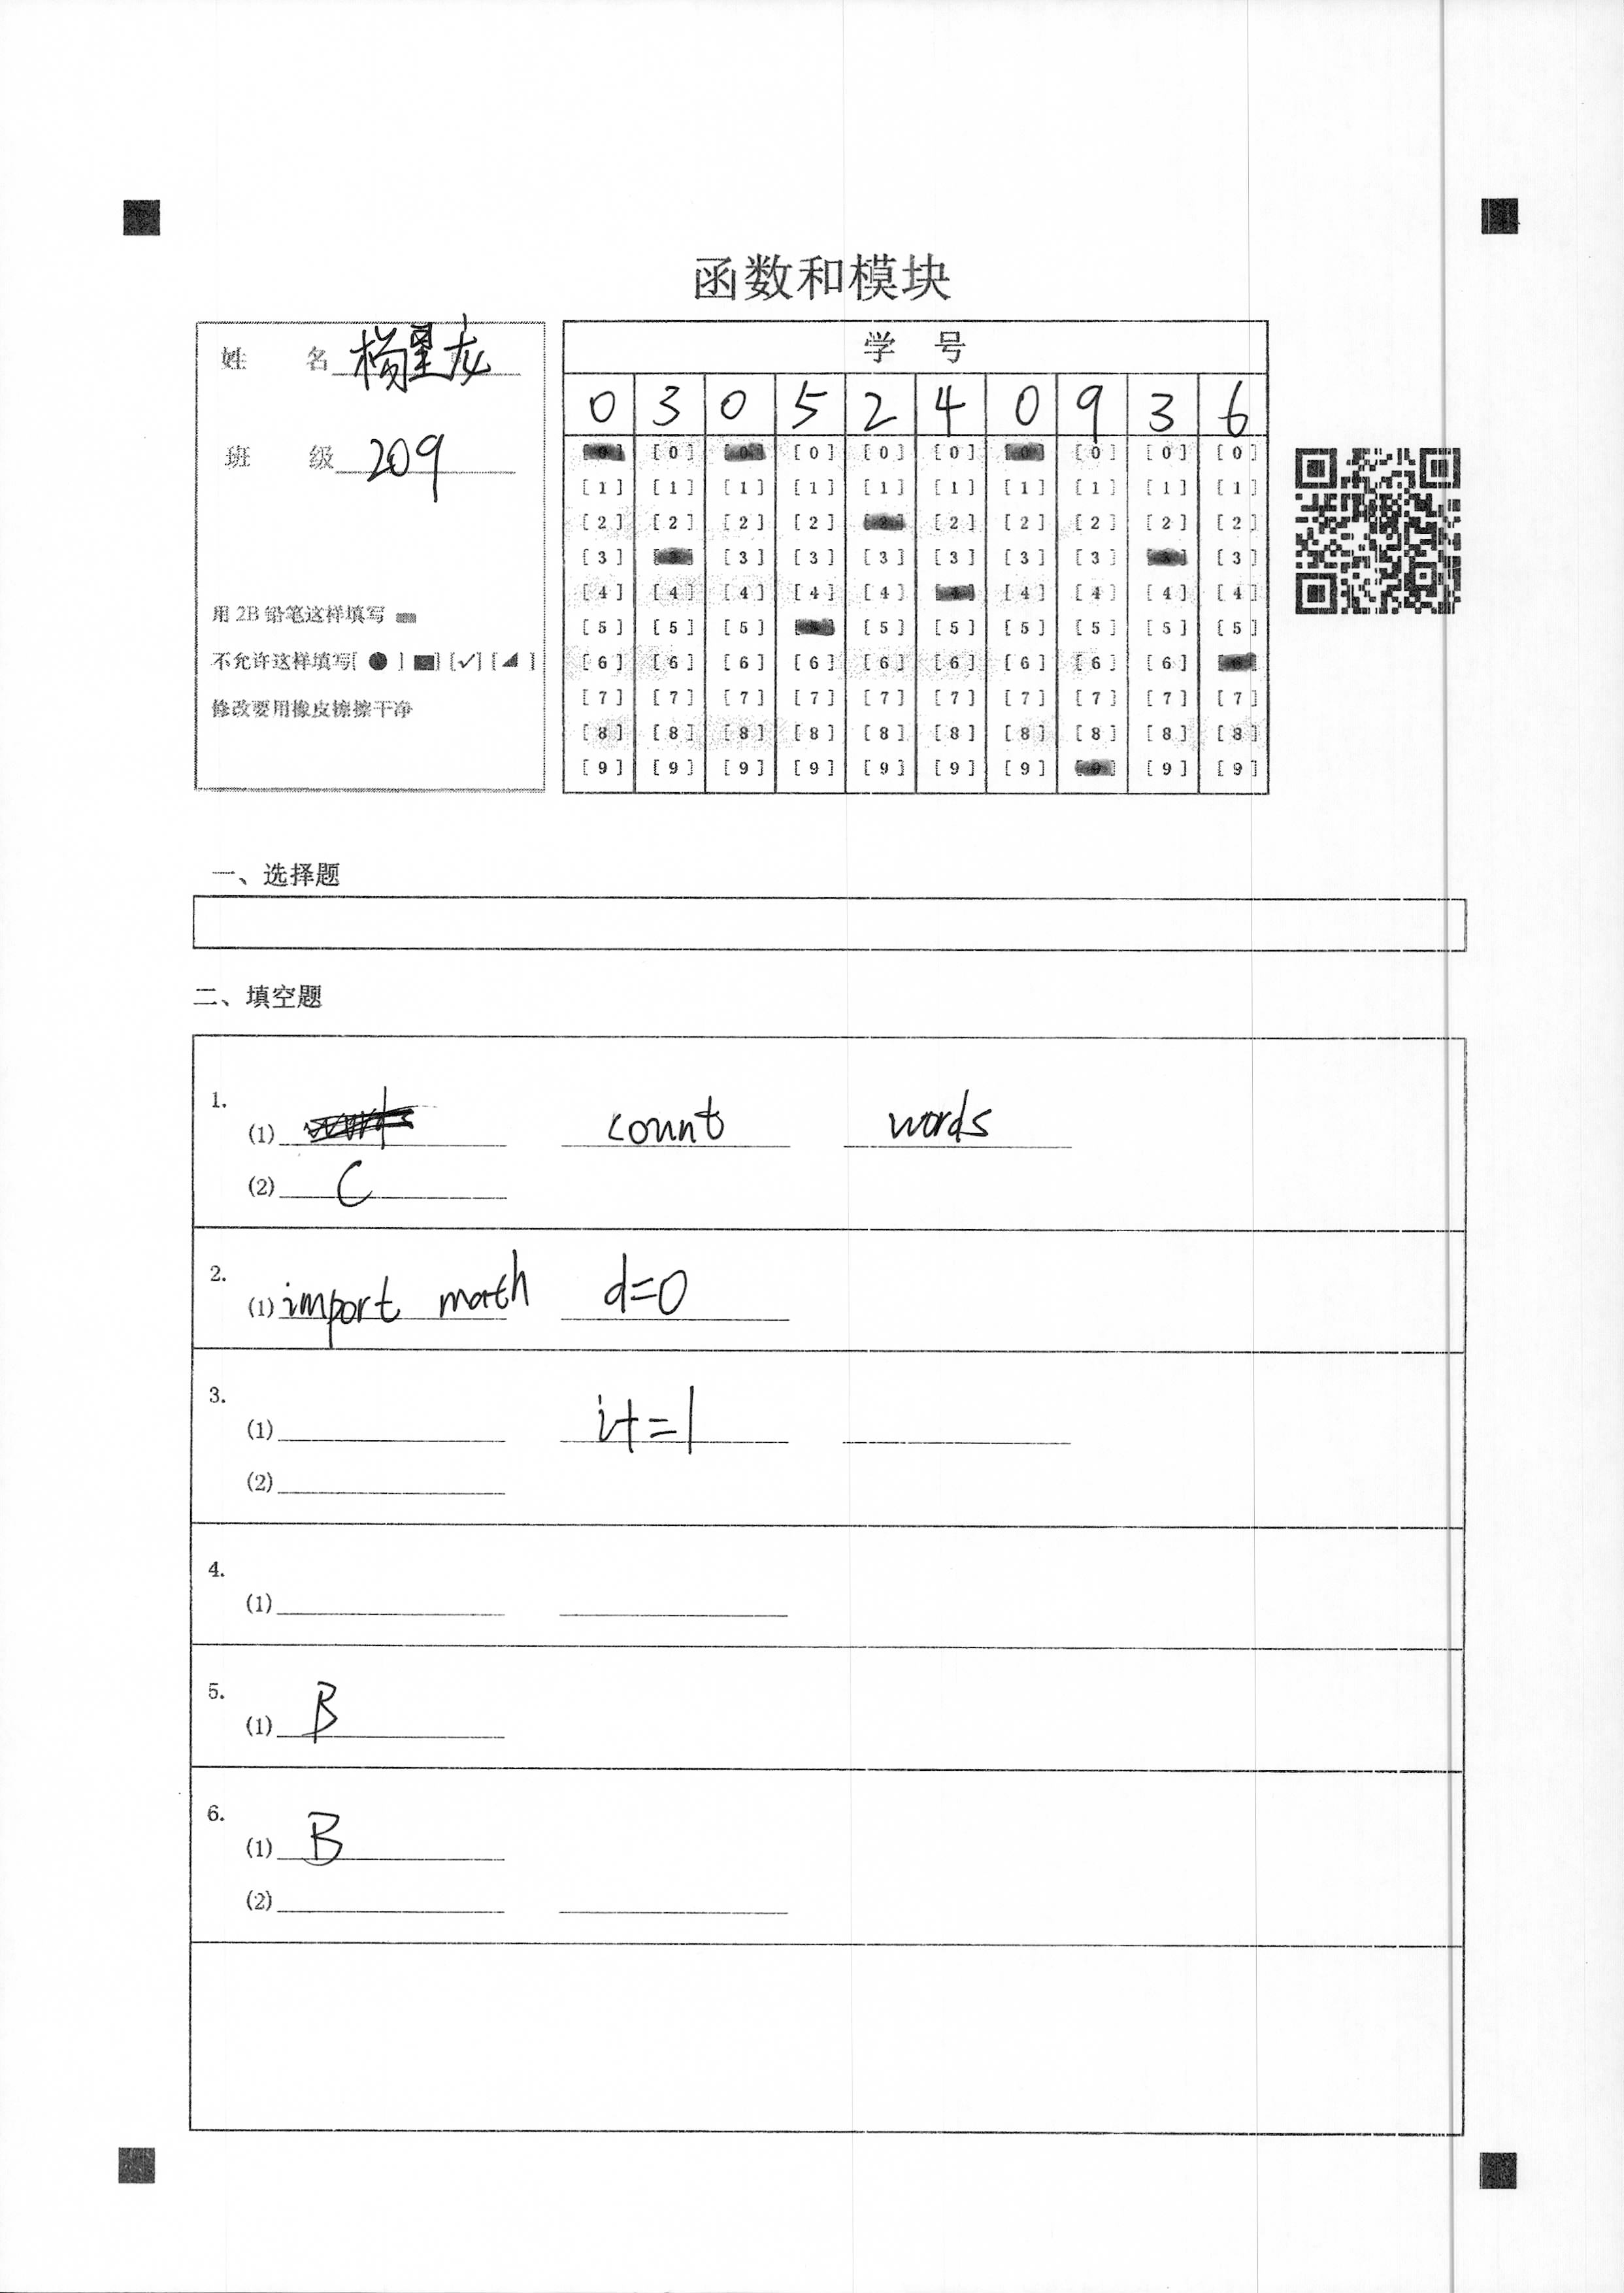 函数和模块
姓 名 杨星龙
班 级 209
用 2B 铅笔这样填写
不允许这样填写[ ● ] [✓] [ ]
修改要用橡皮擦擦干净
学 号
0 3 0 5 2 4 0 9 3 6
[0] [0] [0] [0] [0] [0] [0] [0] [0] [0]
[1] [1] [1] [1] [1] [1] [1] [1] [1] [1]
[2] [2] [2] [2] [2] [2] [2] [2] [2] [2]
[3] [3] [3] [3] [3] [3] [3] [3] [3] [3]
[4] [4] [4] [4] [4] [4] [4] [4] [4] [4]
[5] [5] [5] [5] [5] [5] [5] [5] [5] [5]
[6] [6] [6] [6] [6] [6] [6] [6] [6] [6]
[7] [7] [7] [7] [7] [7] [7] [7] [7] [7]
[8] [8] [8] [8] [8] [8] [8] [8] [8] [8]
[9] [9] [9] [9] [9] [9] [9] [9] [9] [9]
一、选择题
二、填空题
1.
(1) count words
(2) C
2.
(1) import math d=0
3.
(1) i+=1
(2)
4.
(1)
5.
(1) B
6.
(1) B
(2)